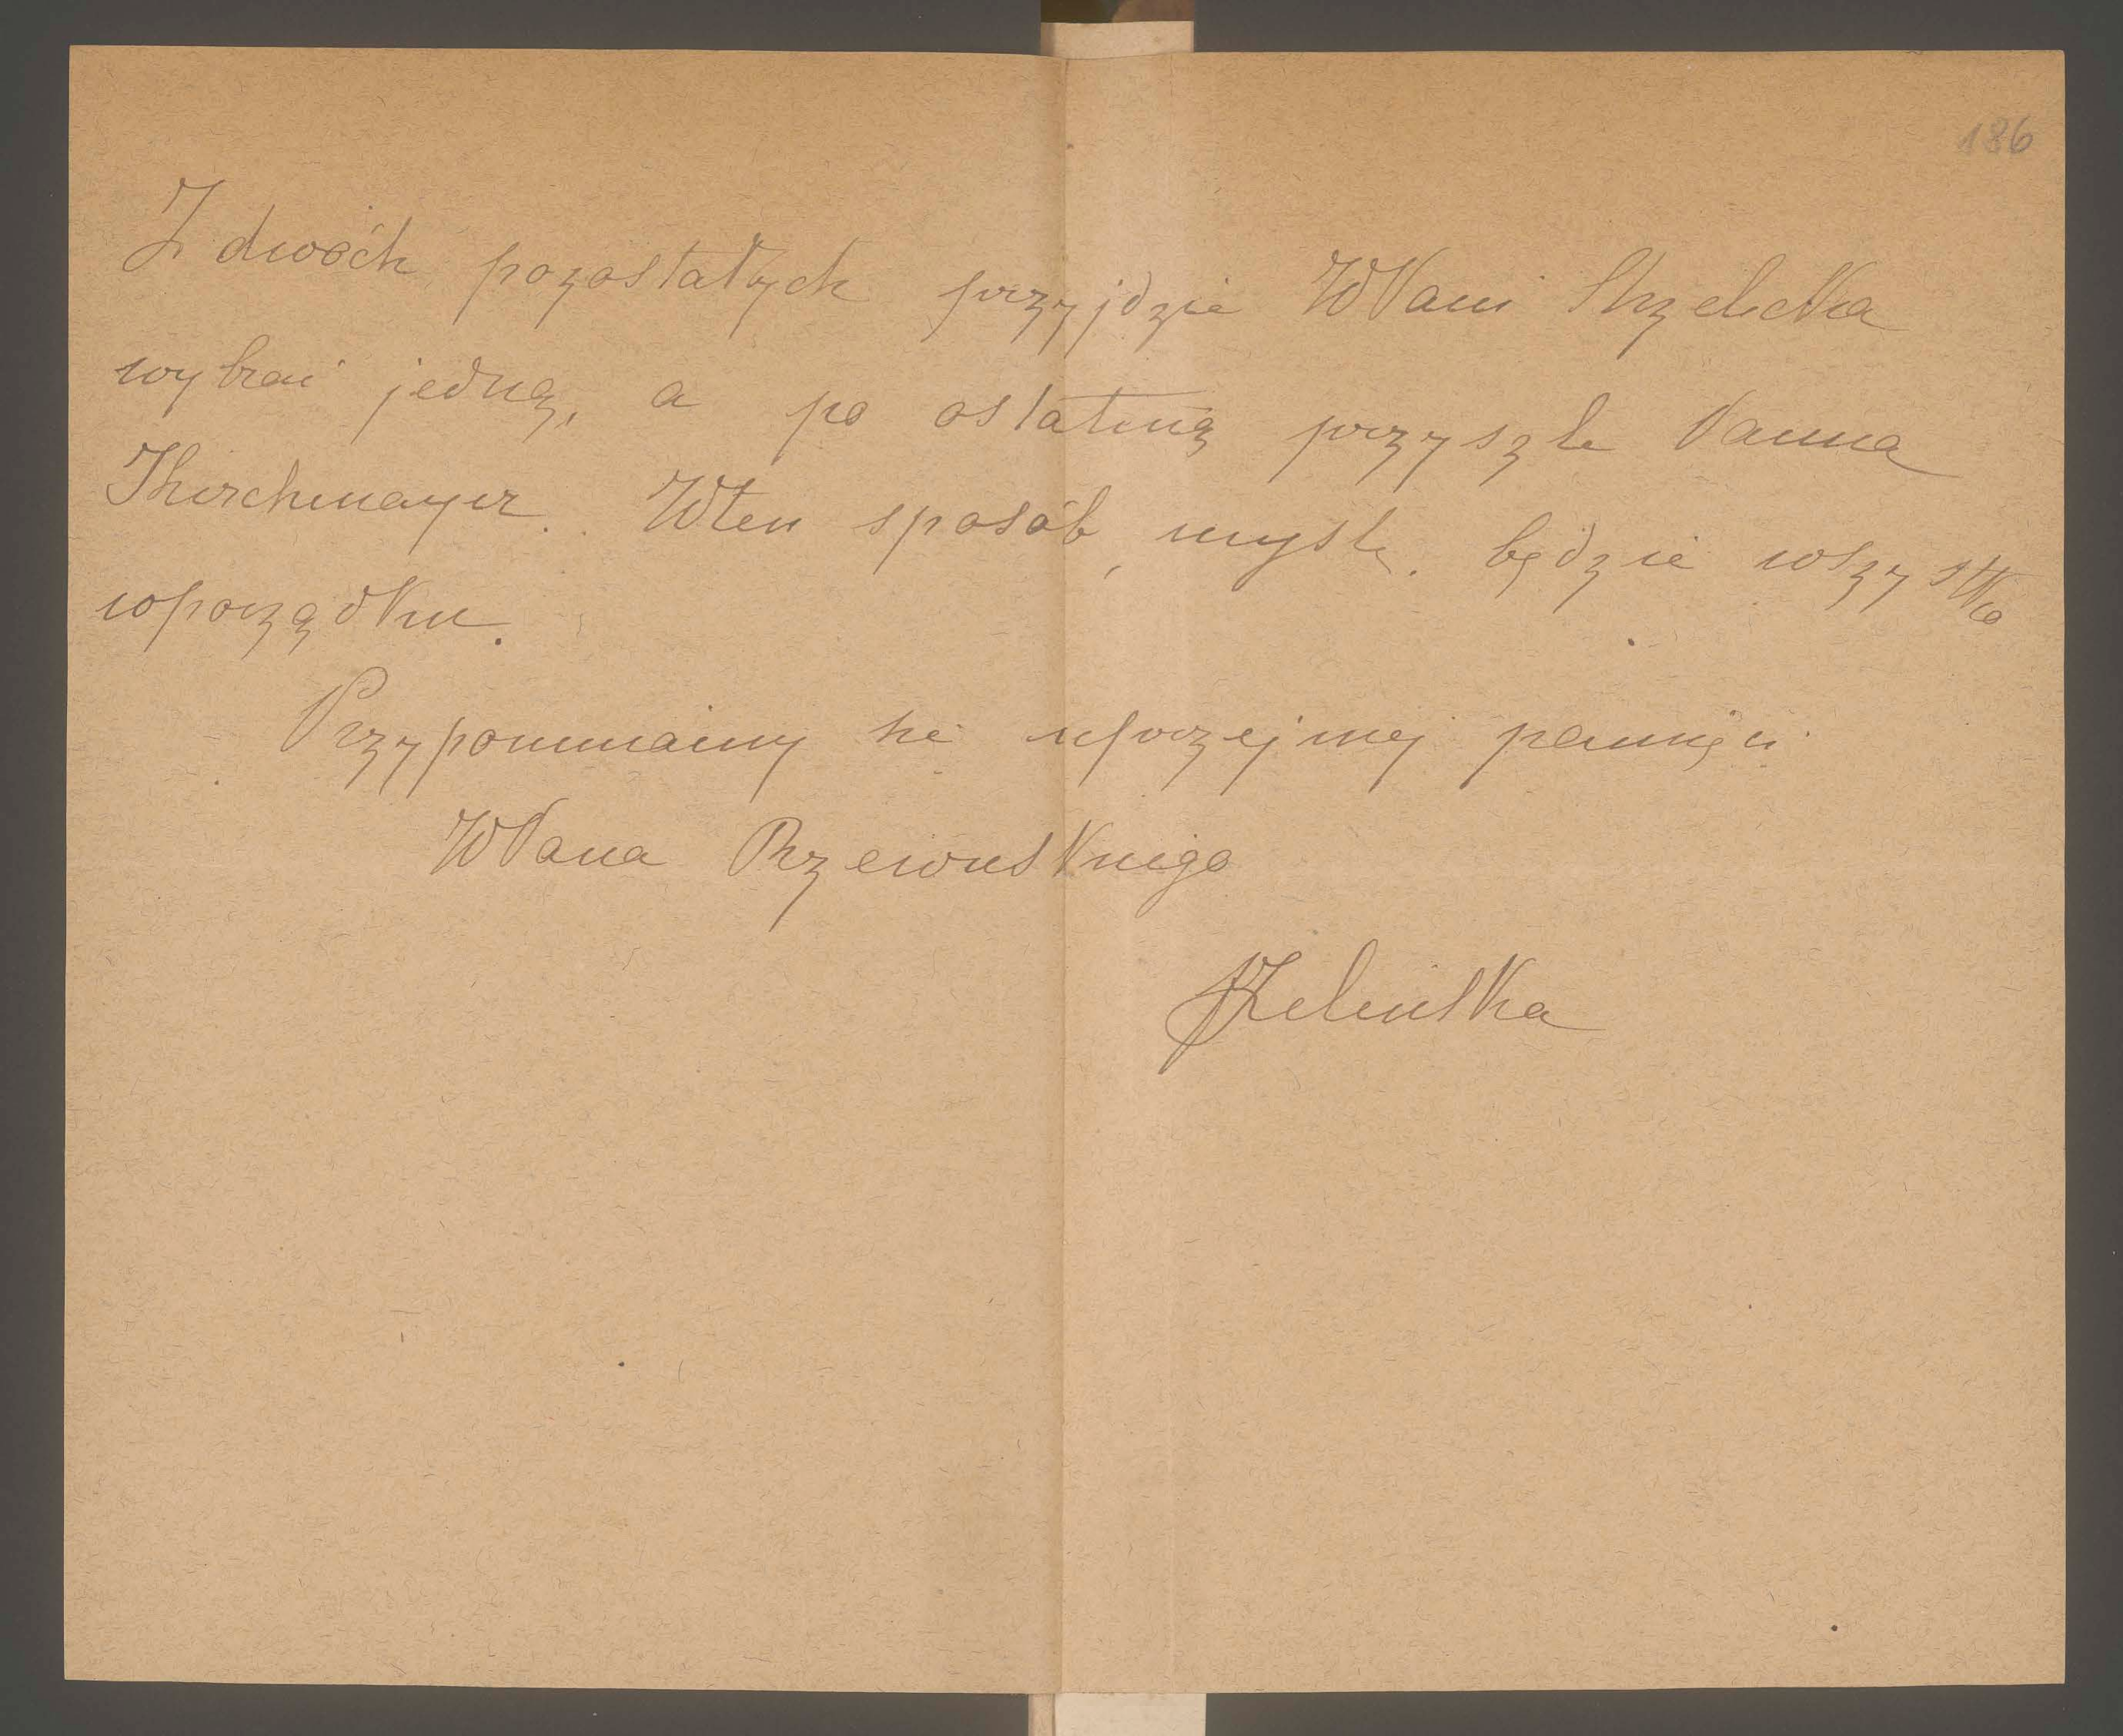 186
Z dwóch pozostałych przyjdzie WPani Strzelecka
wybrać jedną, a po ostatnią przyszle Panna
Kirchmayer. Wten sposób, myślę, będzie wszystko
wporządku.
Przypominamy się uprzejmej pamięci
WPana